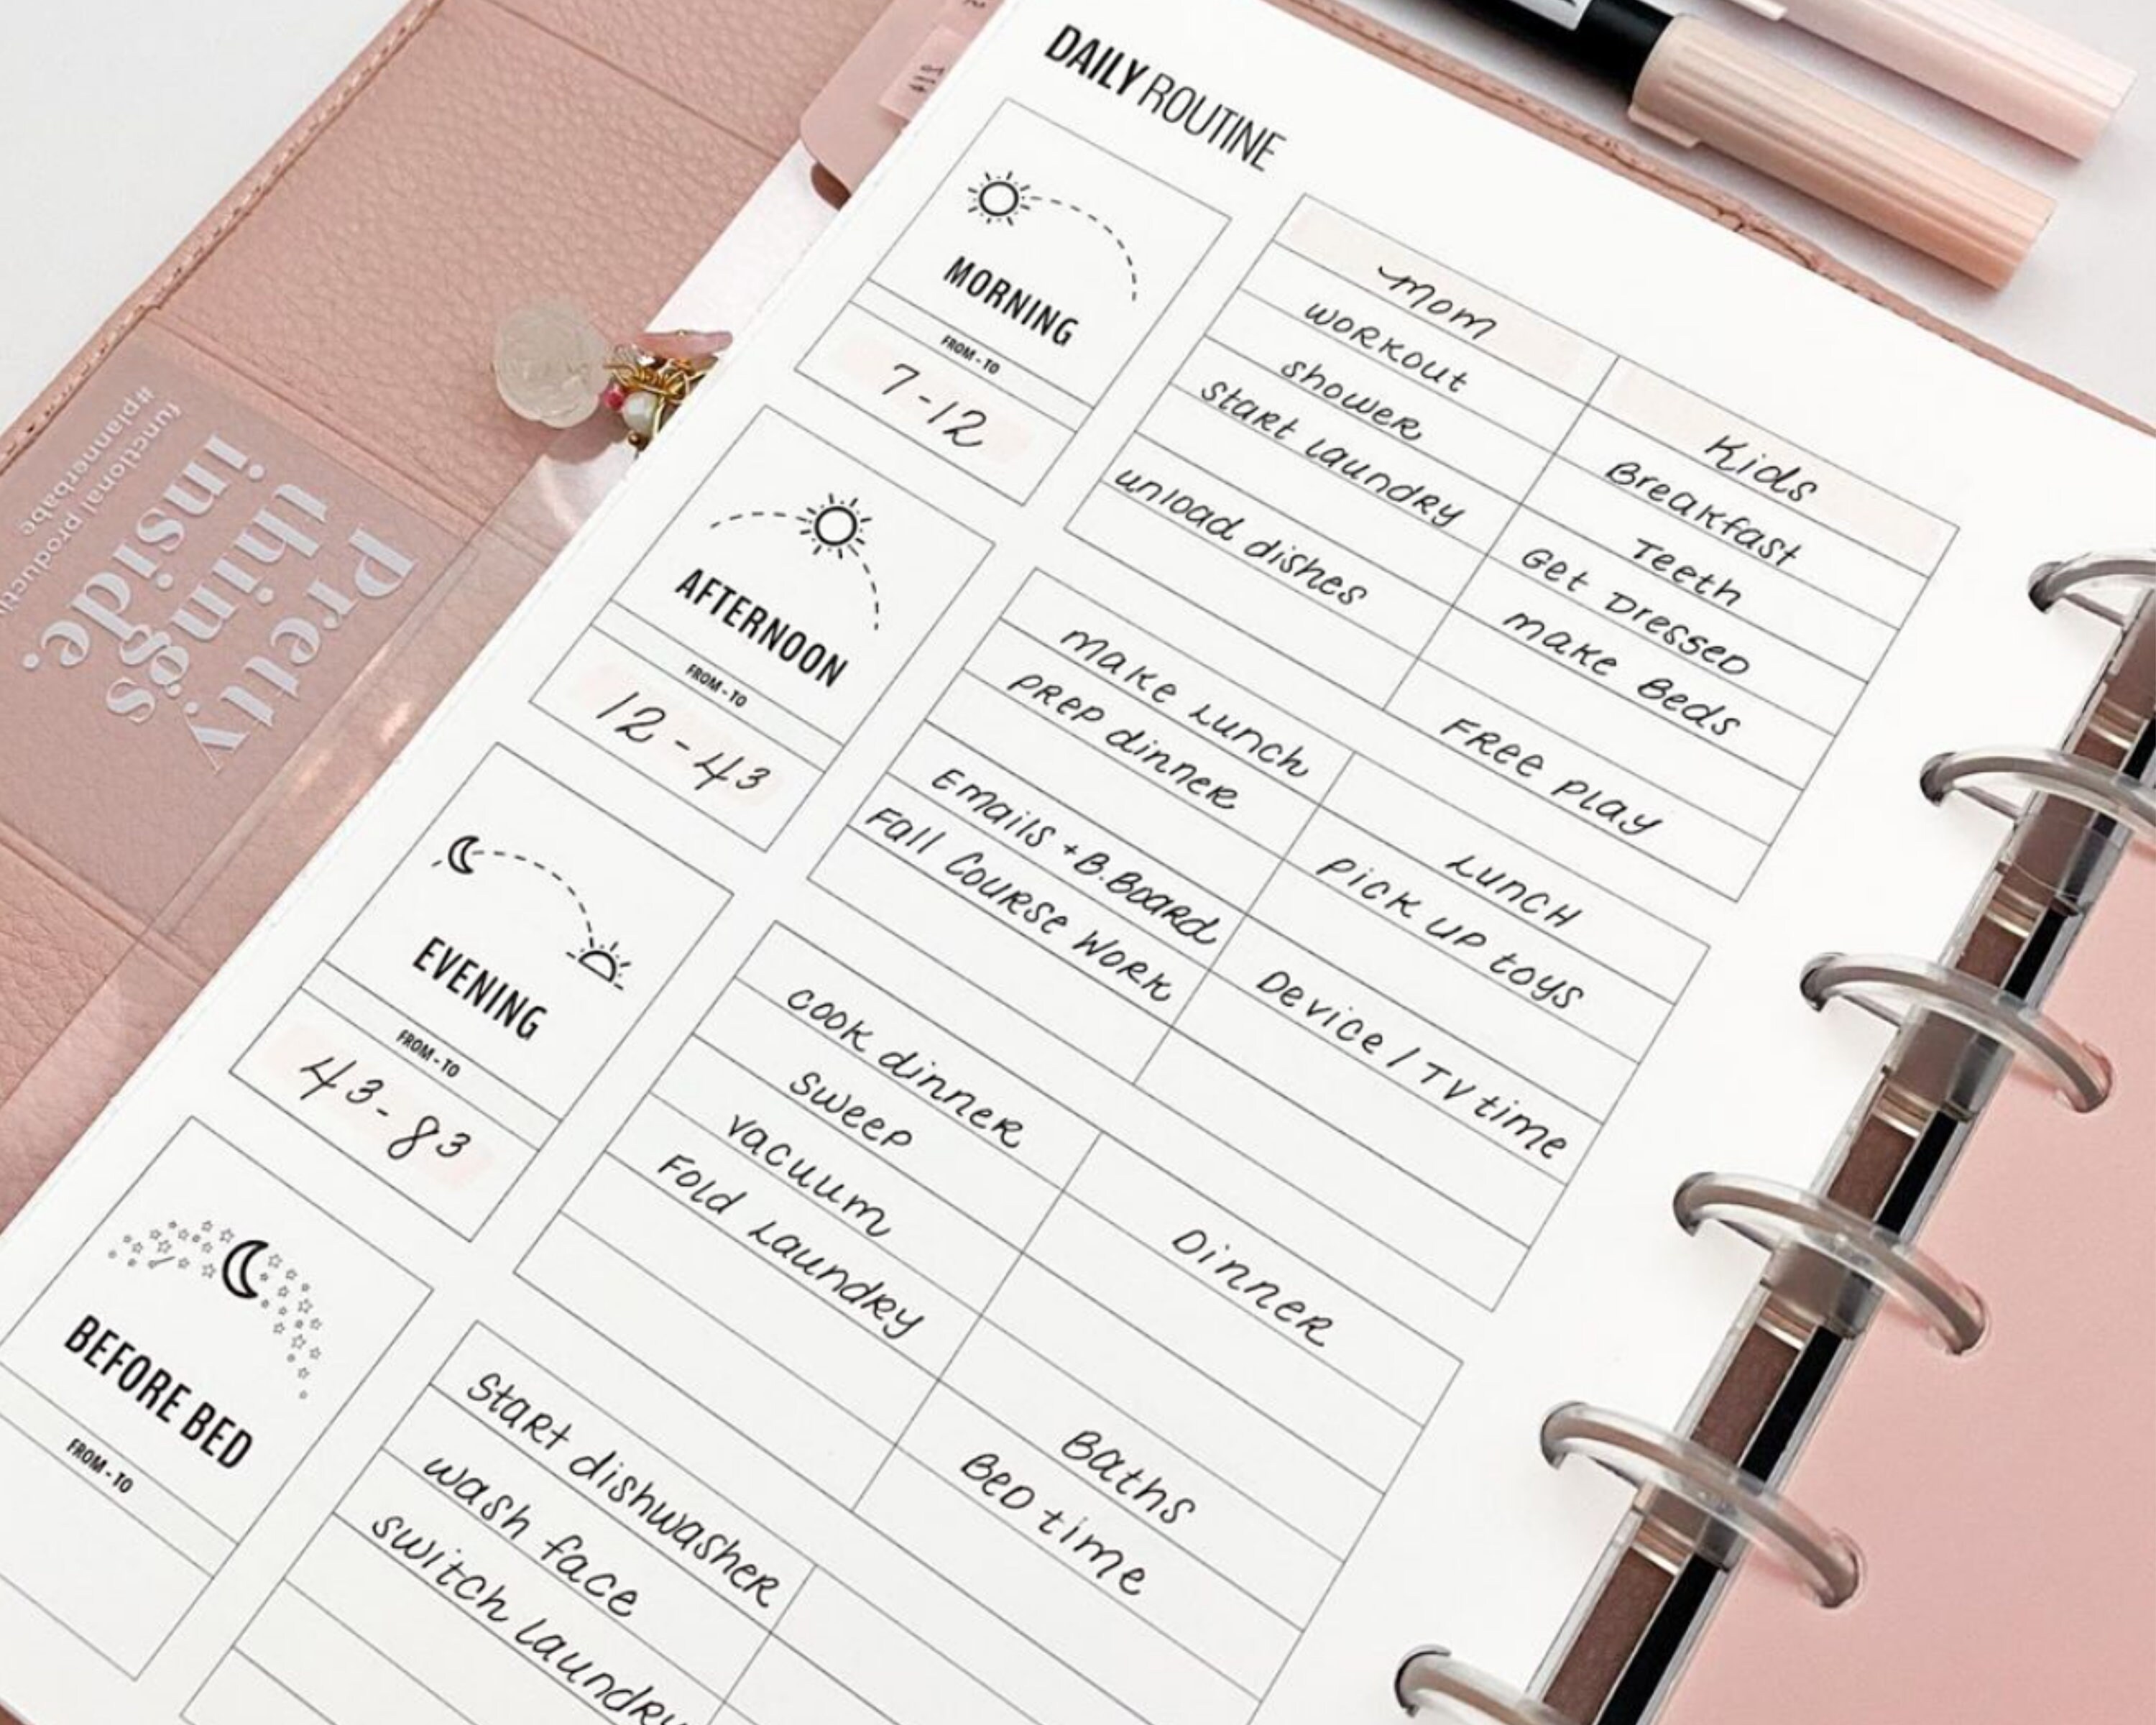 DAILY ROUTINE
MORNING
FROM - TO
7-12
mom
workout
shower
Start Laundry
unload dishes
Kids
Breakfast
Teeth
Get Dressed
make Beds
Free play
AFTERNOON
FROM - TO
12-4³
make Lunch
prep dinner
Emails + B.Board
Fall Course Work
Lunch
pick up toys
Device / TV time
EVENING
FROM - TO
4³-8³
cook dinner
sweep
vacuum
Fold Laundry
Dinner
Baths
Bed time
BEFORE BED
FROM - TO
Start dishwasher
wash face
switch laundry
Pretty
things
inside.
functional producti
#plannerbabe